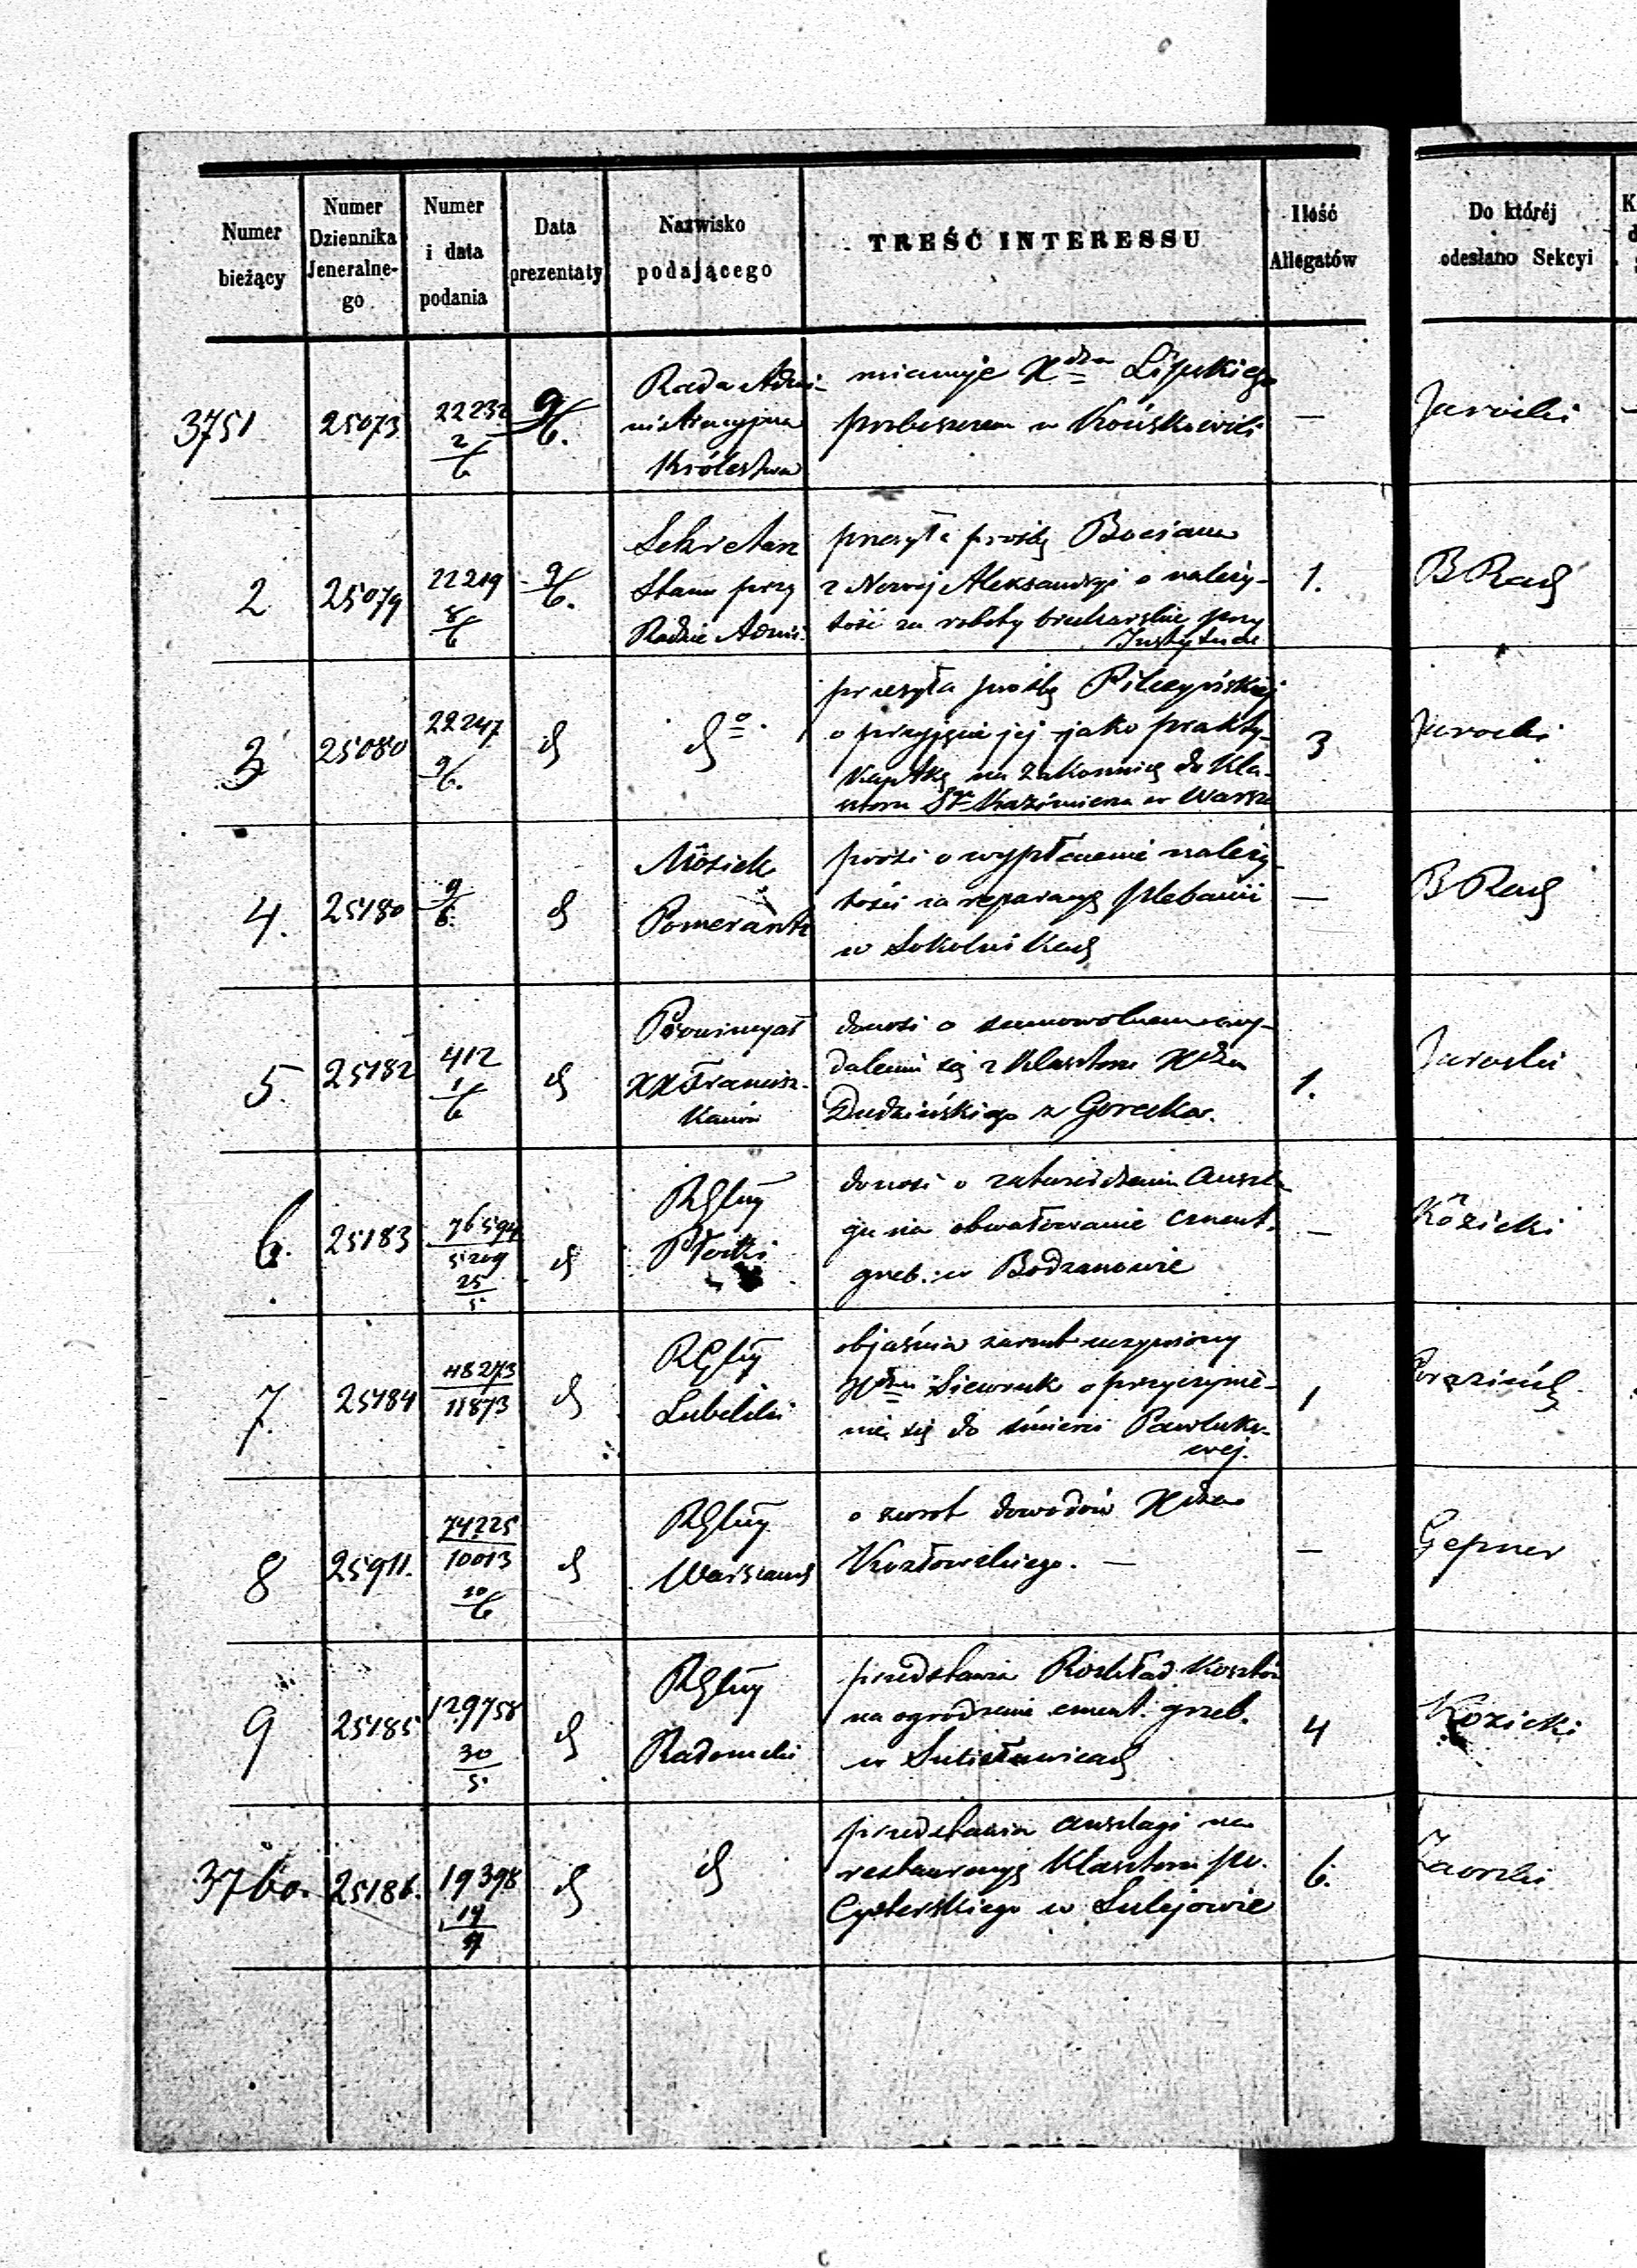 Numer bieżący
Numer Dziennika Jeneralne-go
Numer i data podania
Data prezentaty
Nazwisko podającego
TREŚĆ INTERESSU
Ilość Allegatów
Do któréj odesłano Sekcyi
3751
25073
22232
2/6
9/6.
Rada Admi-
nistracyjna
Królestwa
mianuje Xdza Lipskiego
proboszczem w Końskowoli
—
Jarocki
2
25079
22219
8/6
9/6.
Sekretarz
Stanu przy
Radzie Admi.
przesyła prośbę Bociana
z Nowej Aleksandryi o należy-
tość za roboty brukarskie przy
Instytucie
1.
B Rach
3
25080
22247
9/6.
d
do.
przesyła prośbę Pilczyńskiej
o przyjęcie jej jako prakty-
kantkę na zakonnicę do Kla-
sztoru Sgo Kazimierza w Warsz
3
Jarocki
4.
25180
9/6.
d
Mosiek
Pomerantz
prosi o wypłacenie należy-
tości za reparacyę plebanii
w Sokolnikach
—
B Rach
5.
25182
412
1/6
d
Prowincyał
XX Francisz-
kanów
donosi o samowolnem wy-
daleniu się z Klasztoru Xdza
Dudzińskiego z Gorecka.
1.
Jarocki
6.
25183
76594
5209
25/5.
d
RGlny
Płocki
donosi o zatwierdzeniu anszla-
gu na obwałowanie cment.
grzeb. w Bodzanowie
—
Kozicki
7.
25184
48273
11873
d
RGlny
Lubelski
objaśnia zarzut uczyniony
Xdzu Siewruk o przyczynie-
nie się do śmierci Pawluko-
wej.
1
Porazińsk
8
25911.
74225
10013
20/6
d
RGlny
Warszaws
o zwrot dowodów Xdza
Kozłowskiego. —
—
Gepner
9
25185
129758
30/5.
d
RGlny
Radomski
przedstawia Rozkład kosztów
na ogrodzenie cment. grzeb.
w Sulisławicach
4
Kozicki
3760.
25186.
19398
d
d
przedstawia anszlagi na
restauracyę Klasztoru po.
Cysterskiego w Sulejowie
6.